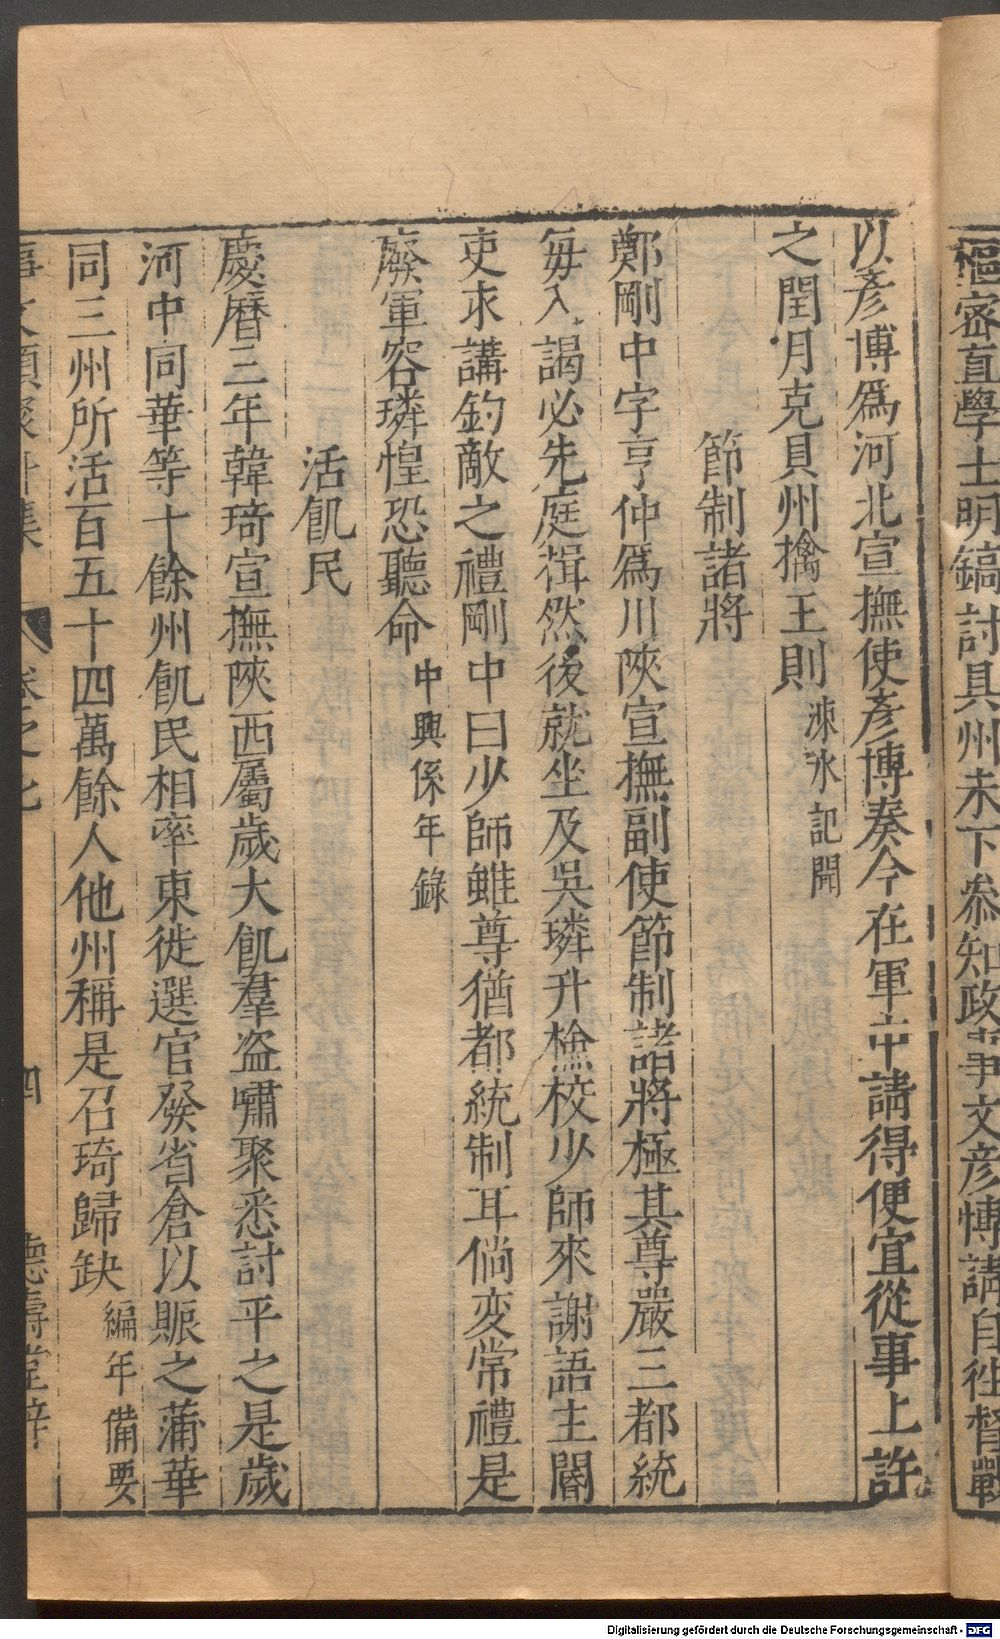 樞密直學士明鎬討具州未下叅知政事文彦愽請自徃督戰
以彦博爲河北宣撫使彦博奏今在軍中請得便宜從事上許
之閏月克貝州擒王則 涑氷記聞
節制諸將
鄭剛中字亨仲爲川陜宣撫副使節制諸將極其尊嚴三都統
毎入謁必先庭揖然後就坐及吳璘升檢校少師來謝語主閽
吏求講鈞敵之禮剛中曰少師雖尊猶都統制耳倘変常禮是
廢軍容璘惶恐聽命 中興係年錄
活飢民
慶曆三年韓琦宣撫陜西屬歲大飢羣盗嘯聚悉討平之是歲
河中同華等十餘州飢民相率東徙選官發省倉以賑之蒲華
同三州所活百五十四萬餘人他州稱是召琦歸缺 編年備要
卷之七 四 德壽堂梓
Digitalisierung gefördert durch die Deutsche Forschungsgemeinschaft - DFG